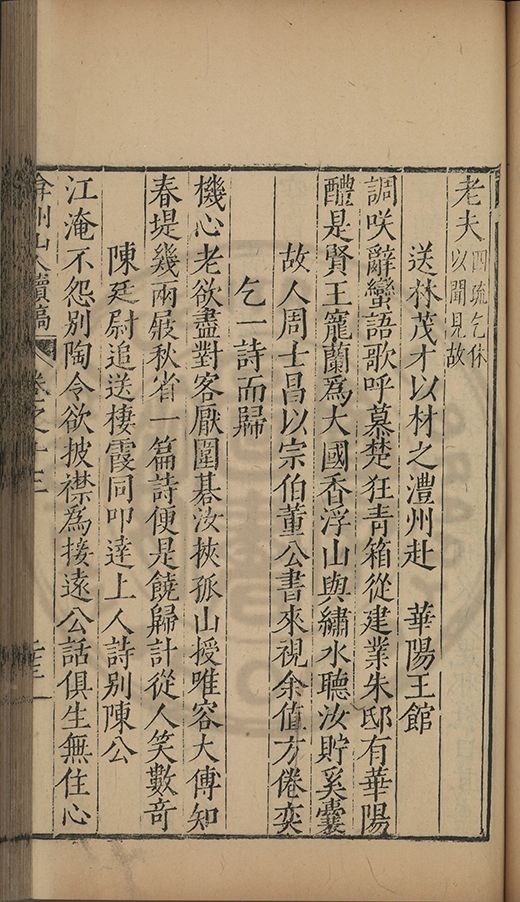 老夫四疏乞休以聞見故
送林茂才以材之澧州赴　華陽王館
調咲辭蠻語歌呼慕楚狂青箱從建業朱邸有華陽
醴是賢王寵蘭為大國香浮山與繡水聽汝貯奚囊
故人周士昌以宗伯董公書來視余值方倦奕
乞一詩而歸
機心老欲盡對客厭圍碁汝挾孤山授唯容大傅知
春堤幾兩屐秋省一篇詩便是饒歸計從人笑數竒
陳廷尉追送棲霞同叩達上人詩別陳公
江淹不怨別陶令欲披襟為接遠公話俱生無住心
弇州山人續稿
卷之十三